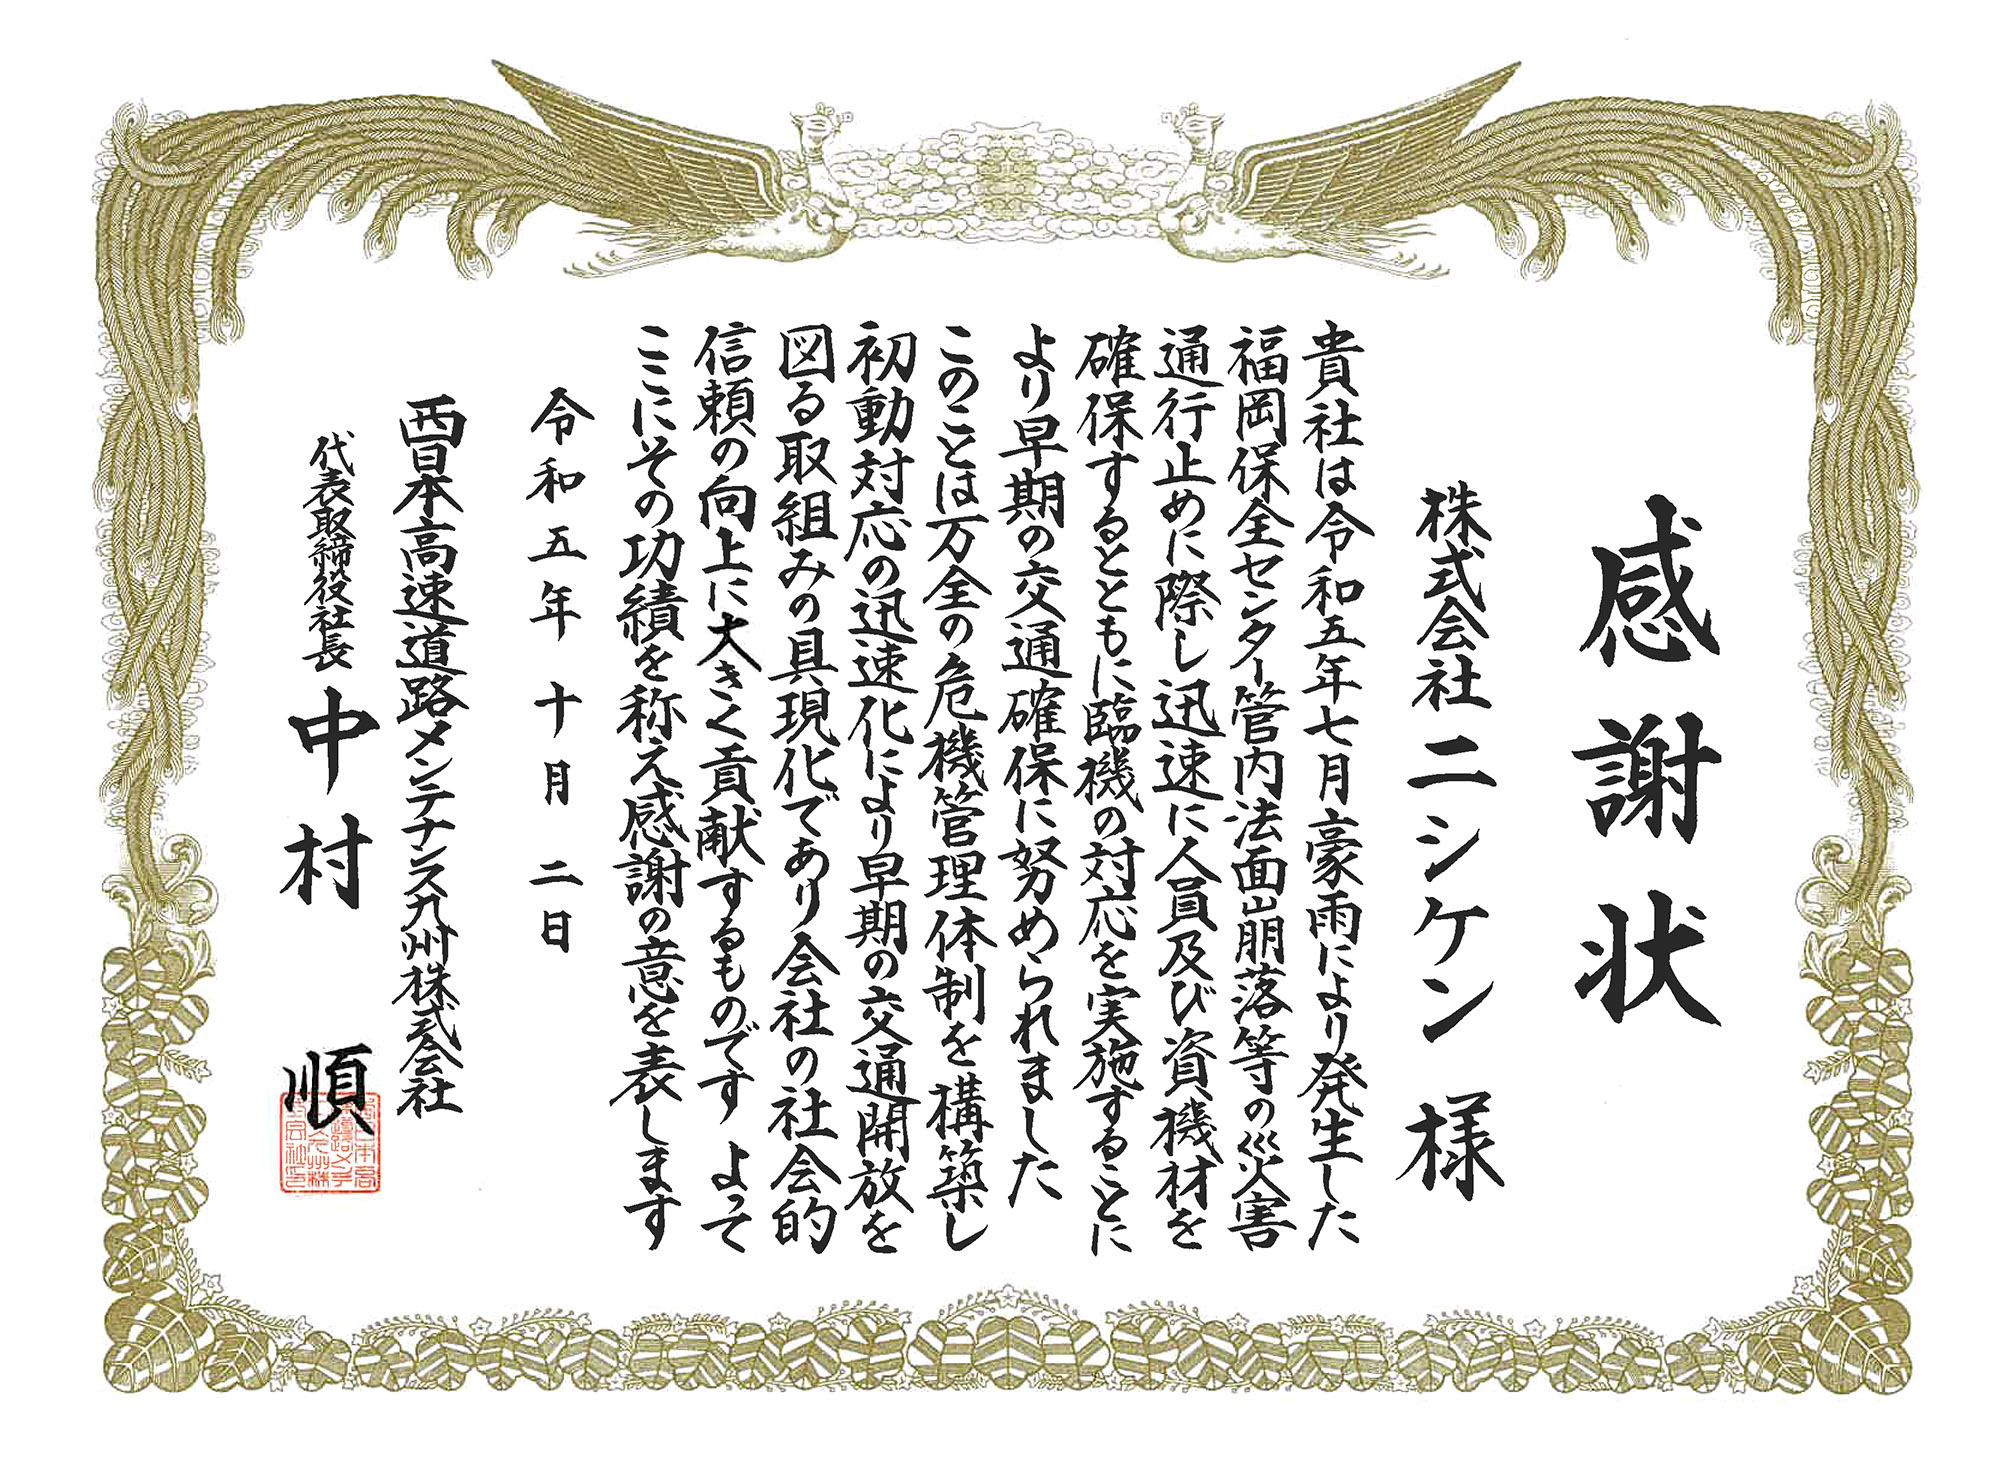 感謝状
株式会社ニシケン様
貴社は令和五年七月豪雨により発生した
福岡保全センター管内法面崩落等の災害
通行止めに際し迅速に人員及び資機材を
確保するとともに臨機の対応を実施することに
より早期の交通確保に努められました
このことは万全の危機管理体制を構築し
初動対応の迅速化により早期の交通開放を
図る取組みの具現化であり会社の社会的
信頼の向上に大きく貢献するものです よって
ここにその功績を称え感謝の意を表します
令和五年十月二日
西日本高速道路メンテナンス九州株式会社
代表取締役社長 中村 順